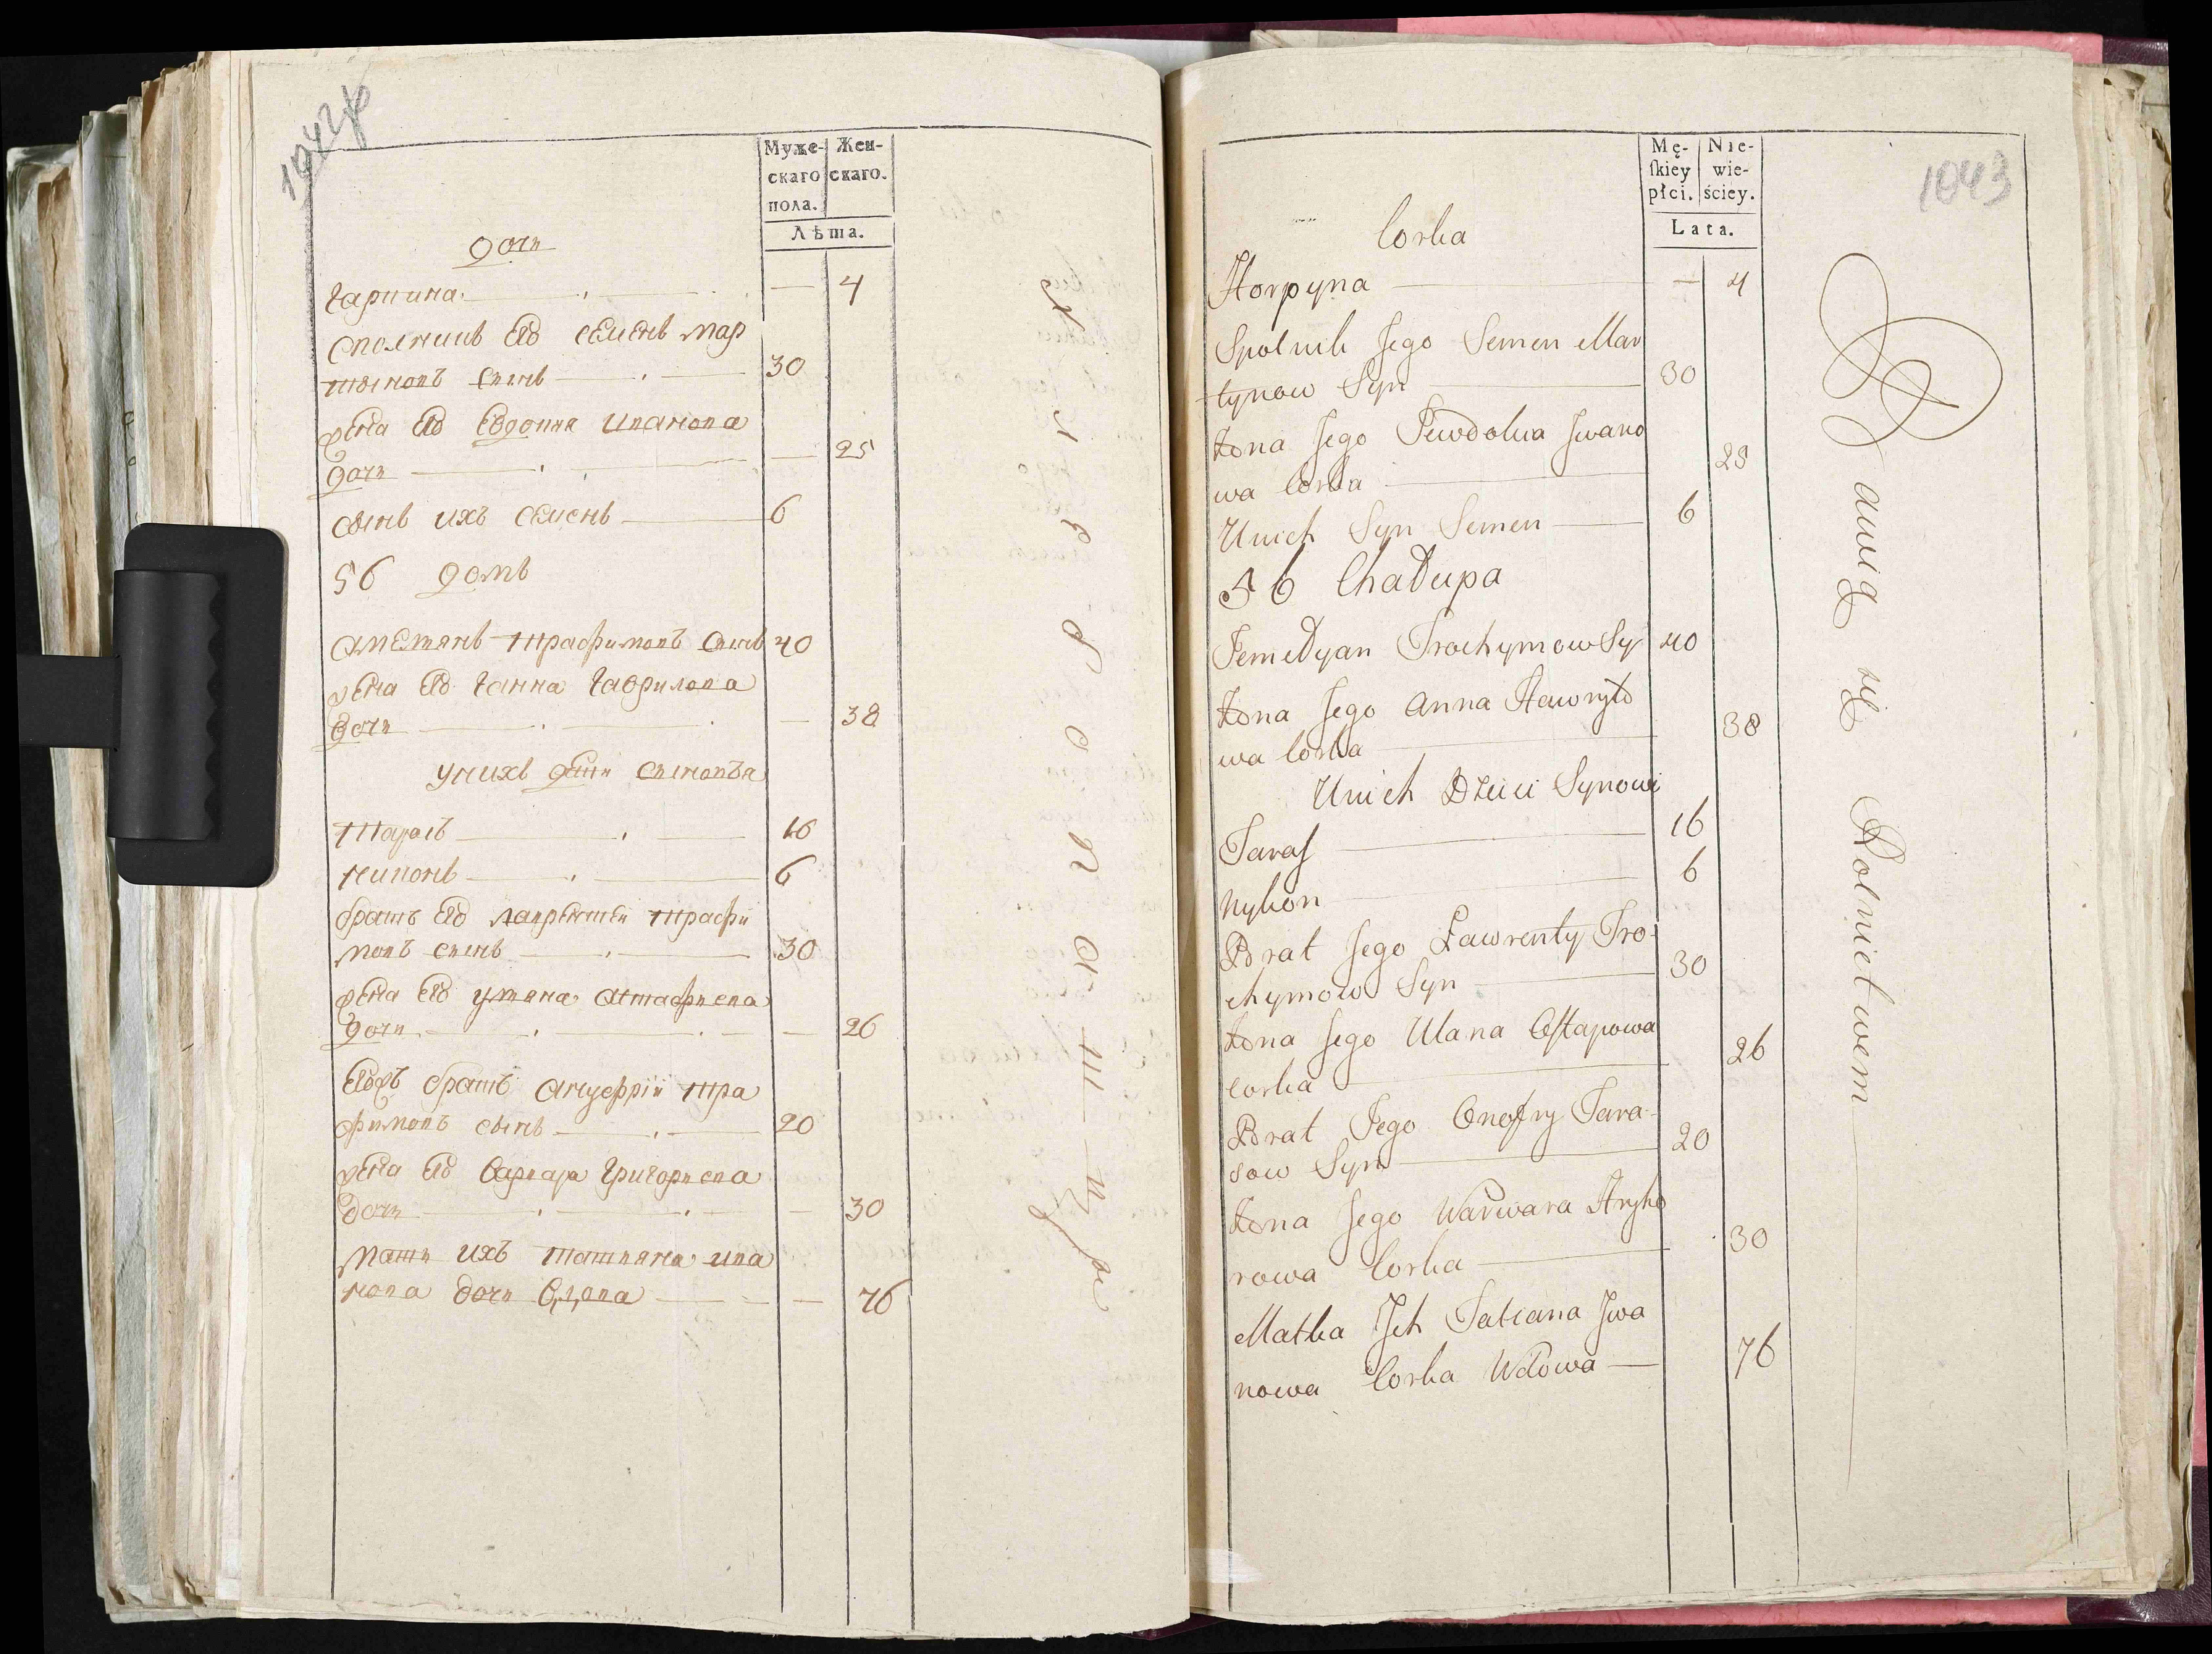 1042
Муже-
скаго
пола.
Жен-
скаго.
Лѣта.
дочи
Гарпина — 4
Сполникъ его Семенъ Мар
тыновъ сынъ 30
жена его Евдокия Иванова
дочи — 25
сынъ ихъ Семенъ 6
56 домъ
Омелянъ Трафимовъ сынъ 40
жена его Ганна Гаврилова
дочи — 38
у нихъ дѣти сыновья
Тарасъ 16
Никонъ 6
братъ его Лаврентѣй Трафи
мовъ сынъ 30
жена его Уляна
дочи — 26
братъ Ануфрїй Тра
фимовъ сынъ 20
жена его Варвара Григориева
дочи — 30
мати ихъ Татияна Ива
нова дочи вдова — 76
1043
Mę-
ſkiey
płci.
Nie-
wie-
ściey.
Lata.
Corka
Horpyna — 4
Spolnik Jego Semen Mar
tynow Syn 30
Żona Jego Jewdokia Jwano
wa Corka 25
Unich Syn Semen 6
56 Chałupa
Jemełyan Trochymow Sy 40
Żona Jego Anna Hawryło
wa Corka 38
Unich Dzieci Synowi
Taraſ 16
Nykon 6
Brat Jego Ławrenty Tro-
chymow Syn 30
Żona Jego Ulana Oſtapowa
Corka 26
Brat Jego Onofry Tara-
sow Syn 20
Żona Jego Warwara Hryho
rowa Corka 30
Matka Jch Tatiana Jwa
nowa Corka Wdowa 76
Bawią się Rolnictwem